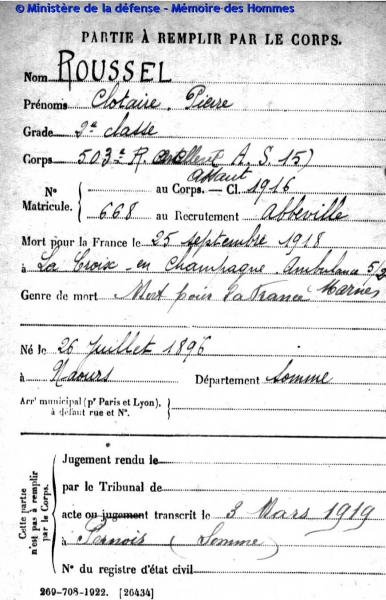 © Ministère de la défense - Mémoire des Hommes
PARTIE À REMPLIR PAR LE CORPS.
Nom ROUSSEL
Prénoms Clotaire Pierre
Grade 2e classe
Corps 503e R. A. S. 15)
assaut
N° au Corps. — Cl. 1916
Matricule. 668 au Recrutement Abbeville
Mort pour la France le 25 septembre 1918
à La Croix-en Champagne Ambulance 5/2
Genre de mort Mort pour la France (Marne)
Né le 26 Juillet 1896
à Naours Département Somme
Arrt municipal (pr Paris et Lyon),
à défaut rue et N°.
Cette partie n'est pas à remplir par le Corps.
Jugement rendu le
par le Tribunal de
acte ou jugement transcrit le 3 Mars 1919
à Pernois (Somme)
N° du registre d'état civil
269-708-1922. [26434]